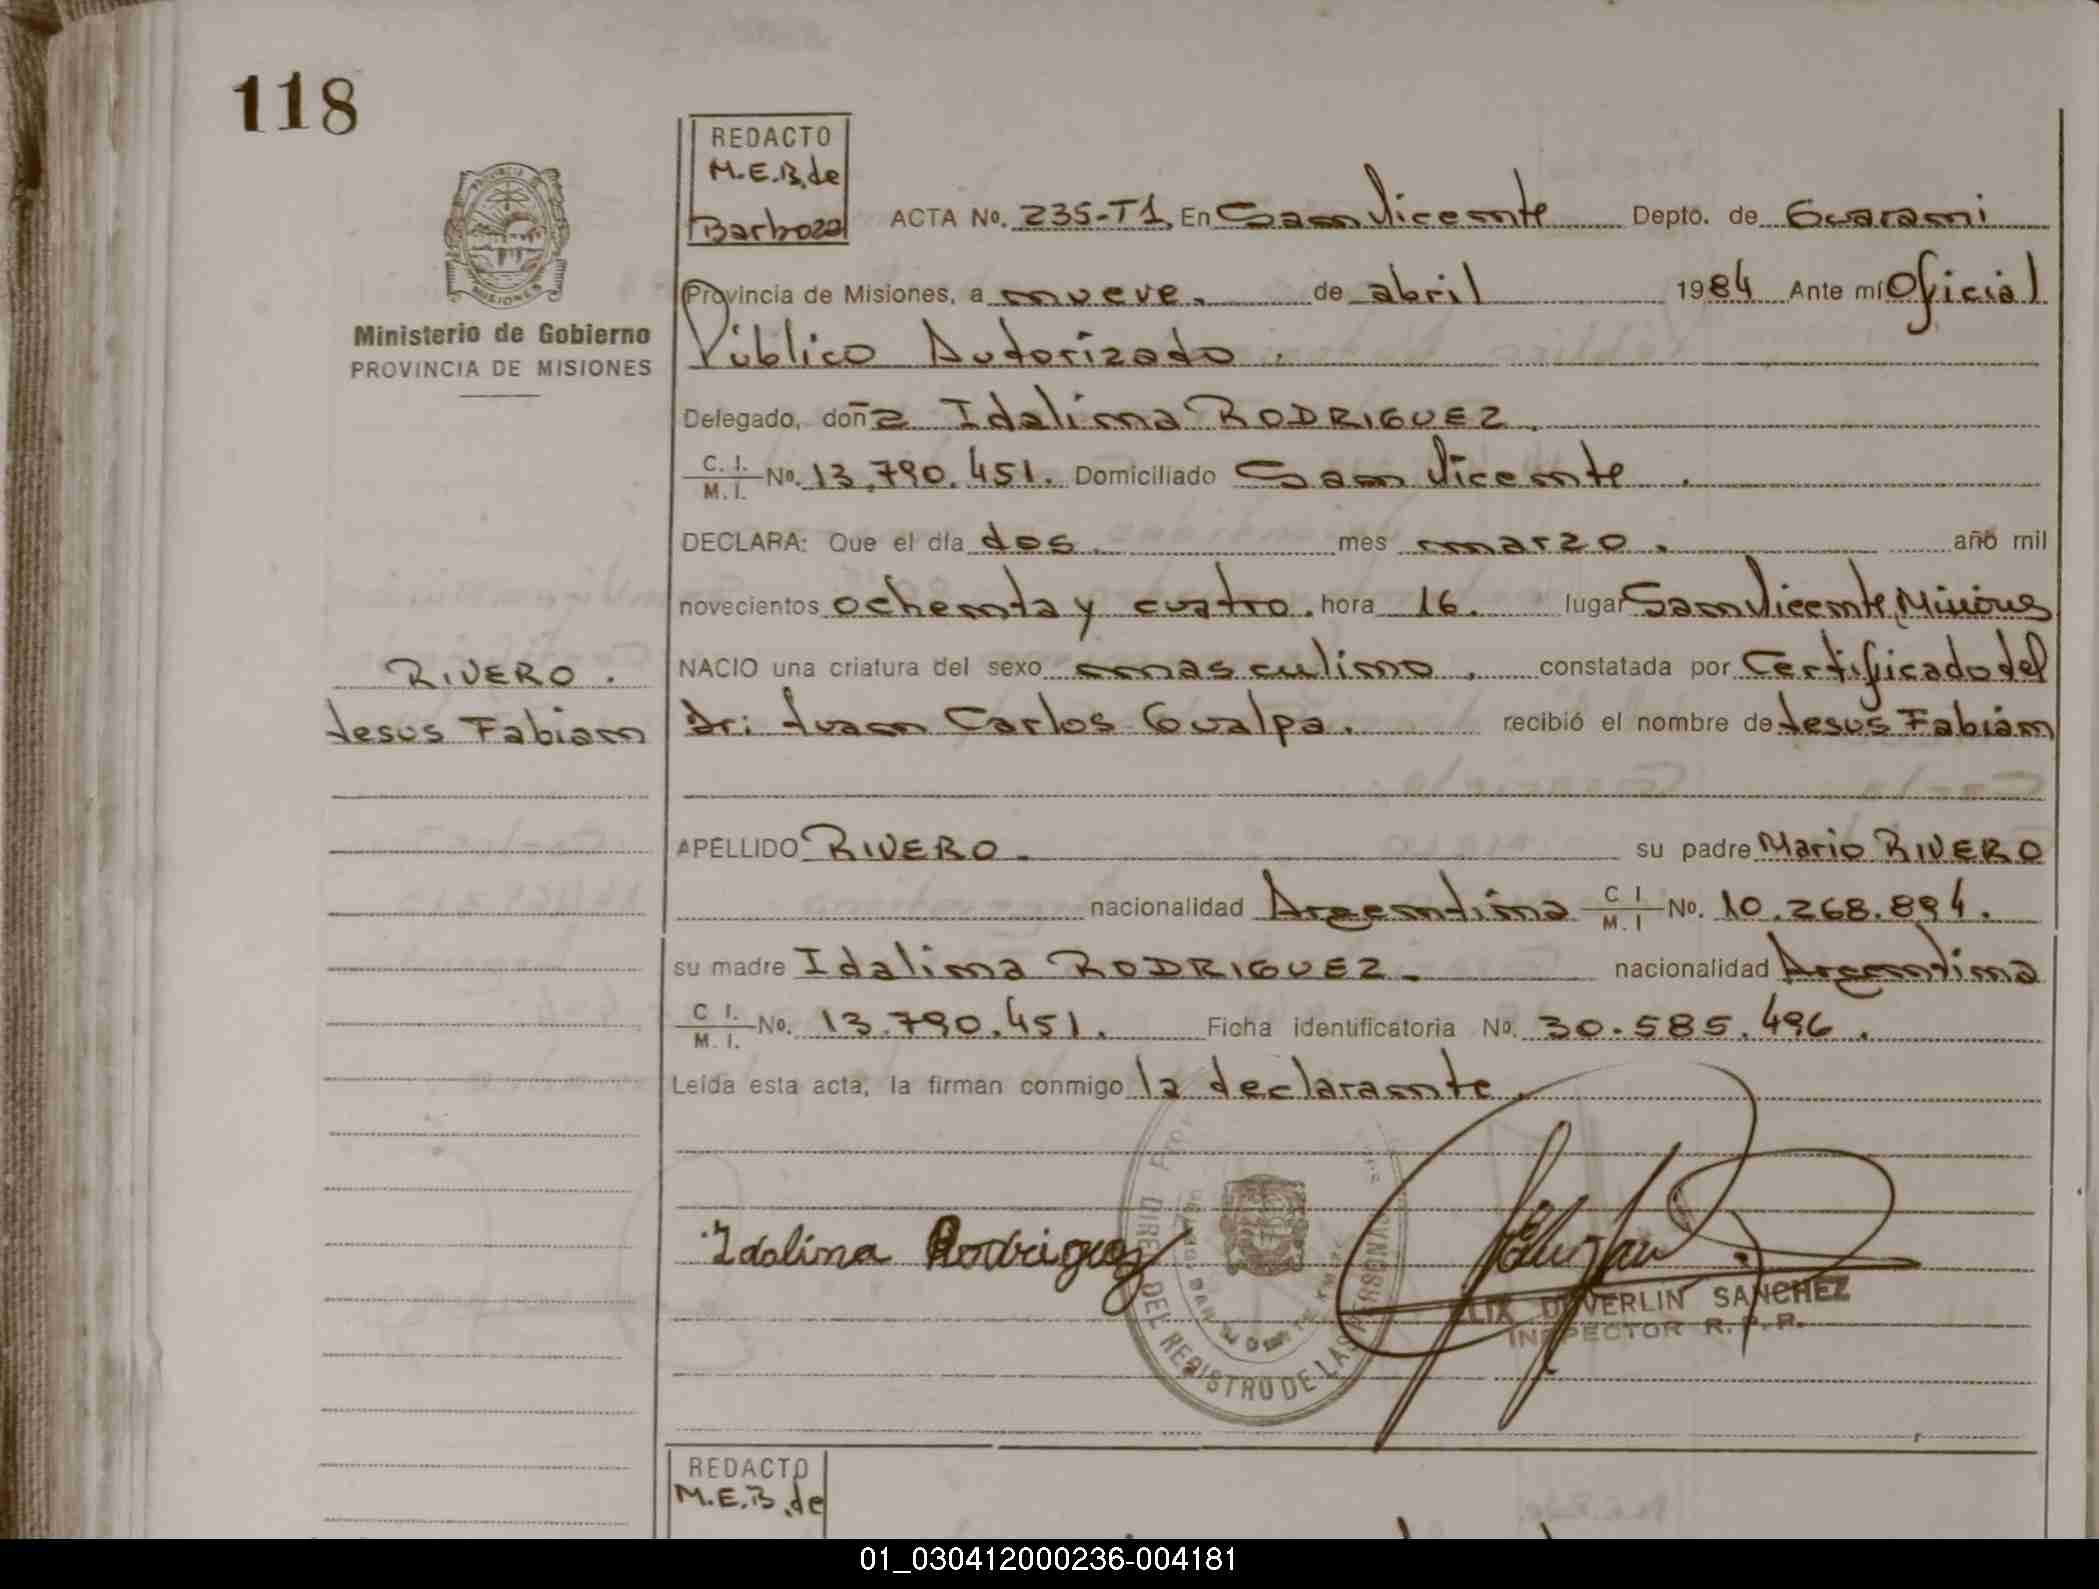 118
REDACTO
M.E.B. de
Barboza
ACTA No. 235-T1, En San Vicente Depto. de Guarani
Provincia de Misiones, a nueve. de abril 1984 Ante mí Oficial
Público Autorizado.
Ministerio de Gobierno
PROVINCIA DE MISIONES
Delegado, doña Idalina RODRIGUEZ.
C. I. / M. I. No. 13.790.451. Domiciliado San Vicente.
DECLARA: Que el día dos. mes marzo. año mil
novecientos ochenta y cuatro. hora 16. lugar San Vicente, Misiones
NACIO una criatura del sexo masculino, constatada por Certificado del
RIVERO.
Jesus Fabian
Dr: Juan Carlos Gualpa. recibió el nombre de Jesús Fabián
APELLIDO RIVERO. su padre Mario RIVERO
nacionalidad Argentina C I / M. I No. 10.268.894.
su madre Idalina RODRIGUEZ. nacionalidad Argentina
C I. / M. I. No. 13.790.451. Ficha identificatoria No. 30.585.496.
Leída esta acta, la firman conmigo la declarante.
Idalina Rodriguez
DEL REGISTRO DE LAS PERSONAS
DUVERLIN SANCHEZ
INSPECTOR R.P.P.
REDACTO
M.E.B. de
01_030412000236-004181